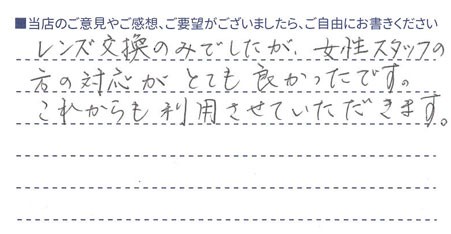 ■当店のご意見やご感想、ご要望がございましたら、ご自由にお書きください
レンズ交換のみでしたが、女性スタッフの
方の対応がとても良かったです。
これからも利用させていただきます。